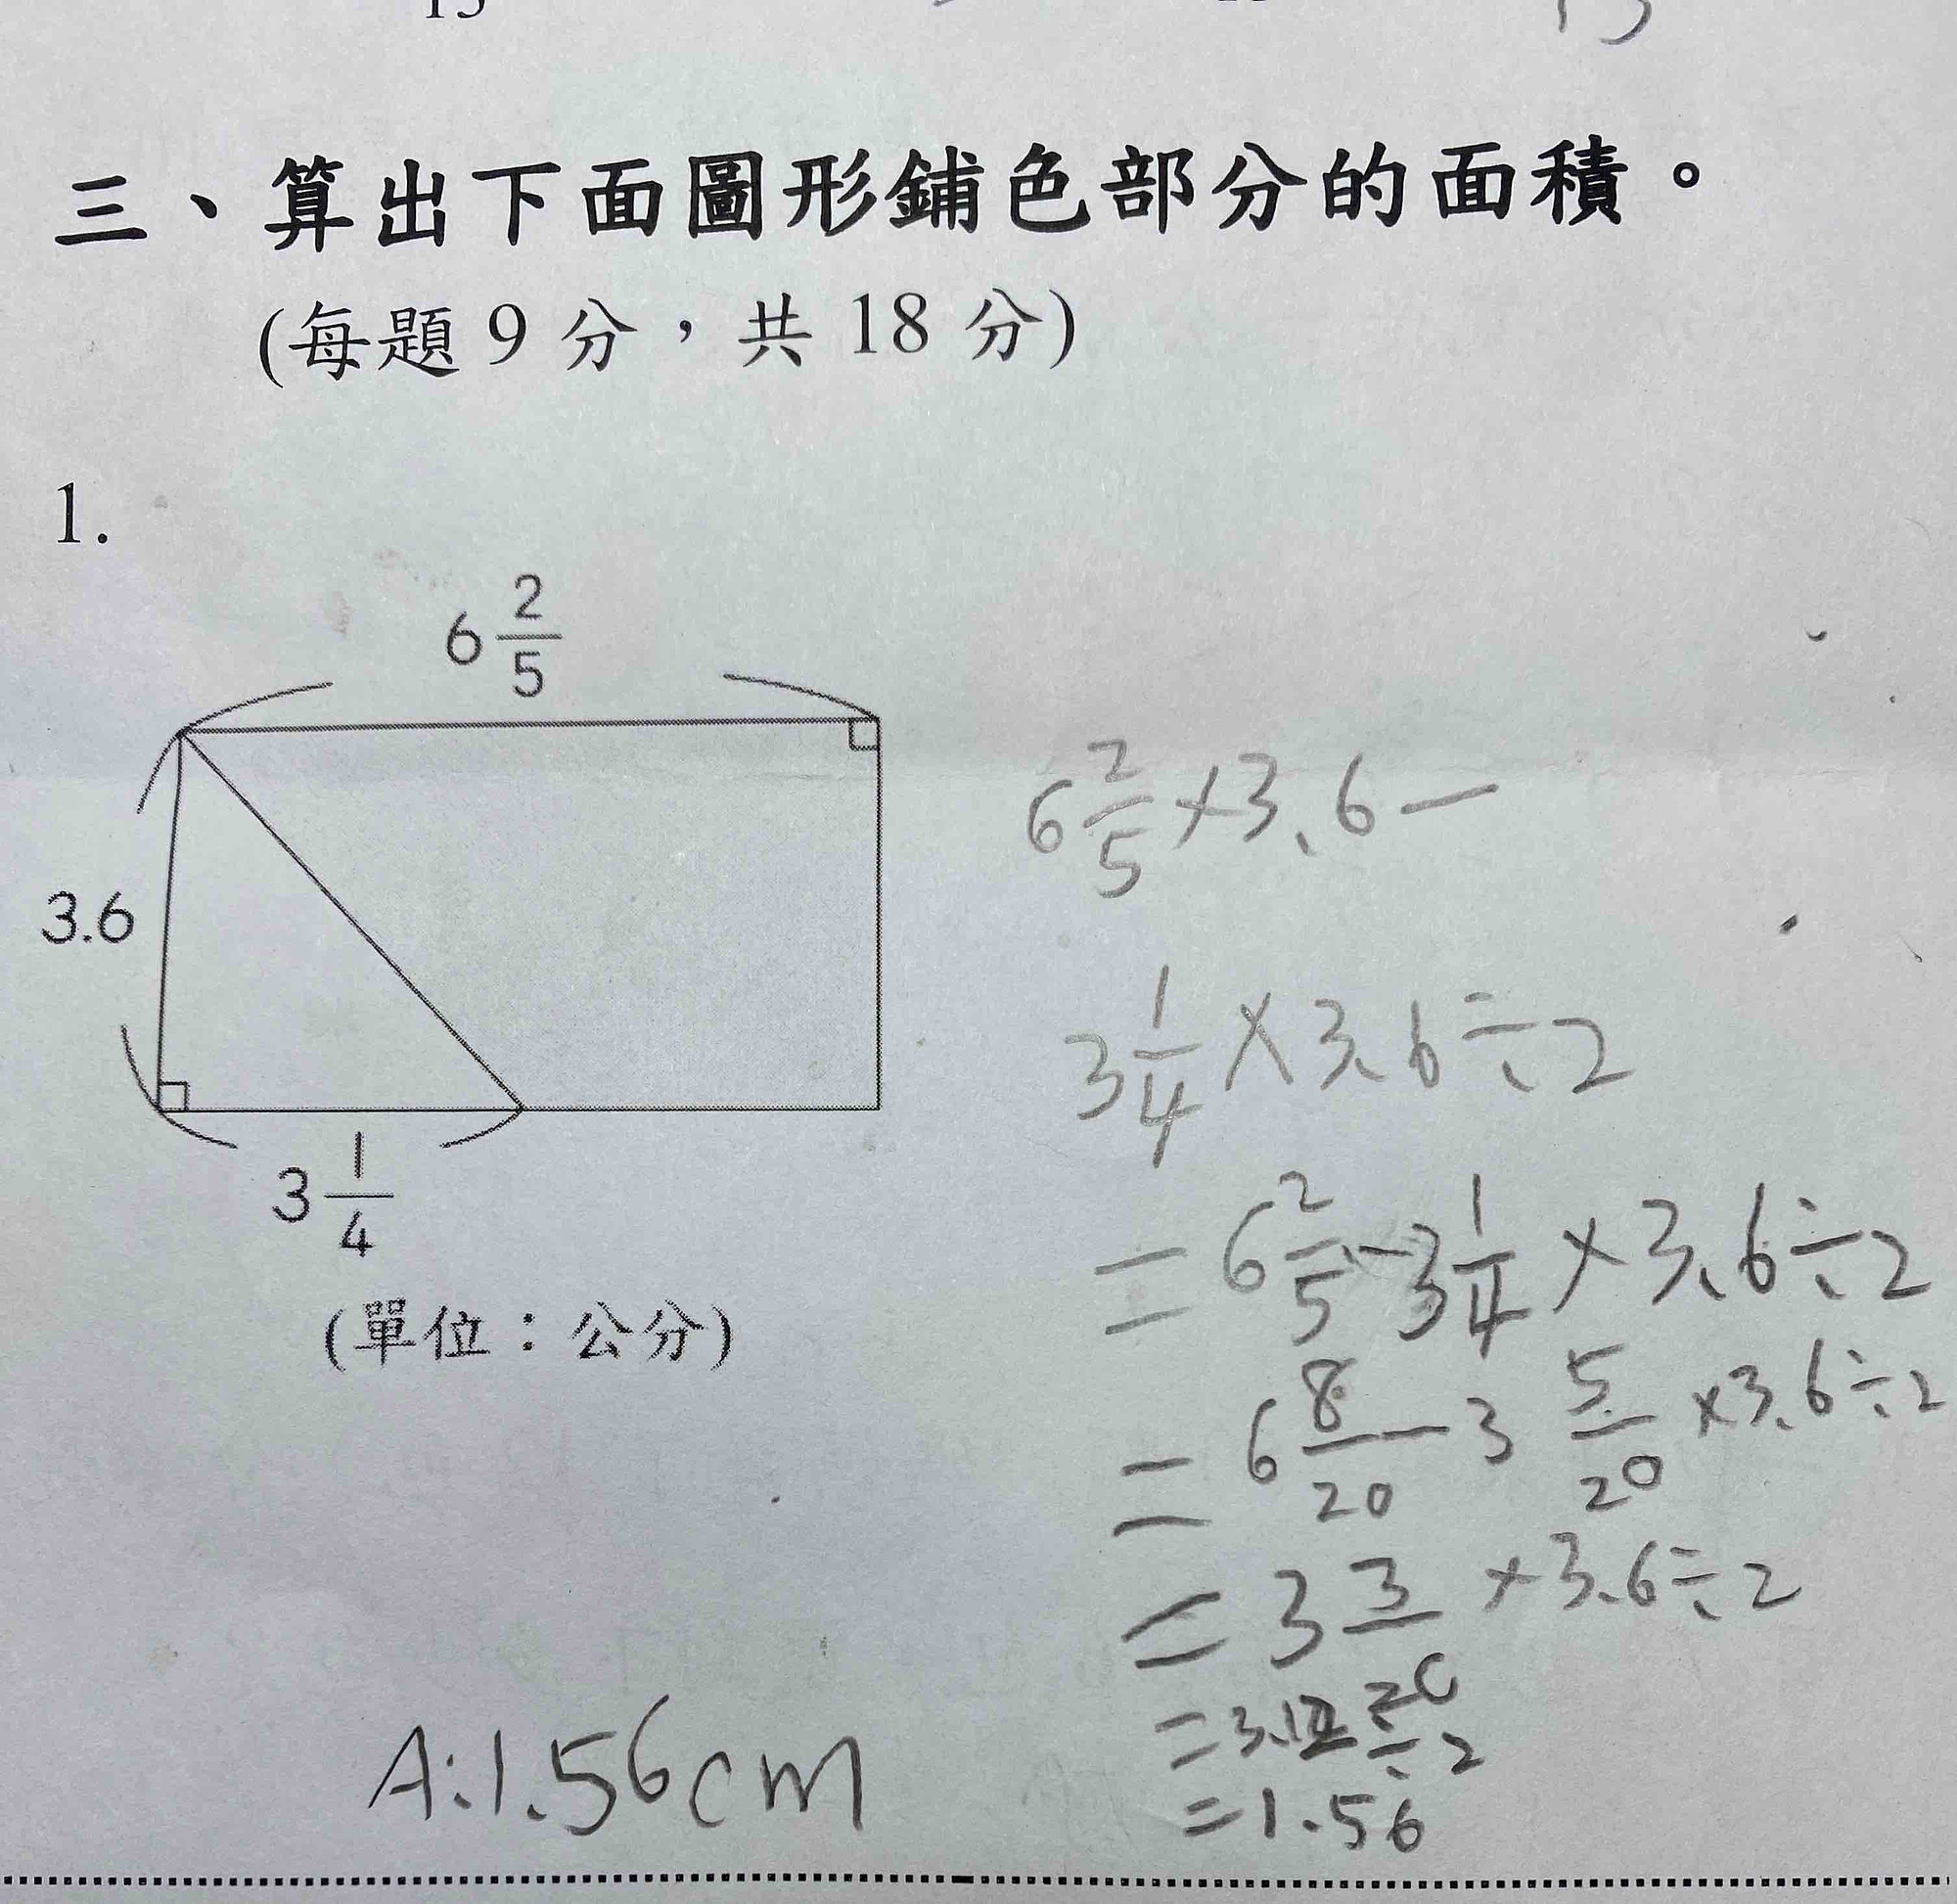 三、算出下面圖形鋪色部分的面積。
(每題 9 分，共 18 分)
1.
6 2/5
3.6
3 1/4
(單位：公分)
6 2/5 ×3.6 —
3 1/4 ×3.6÷2
= 6 2/5 - 3 1/4 ×3.6÷2
= 6 8/20 - 3 5/20 ×3.6÷2
= 3 3/20 ×3.6÷2
=3.12÷2
=1.56
A:1.56cm